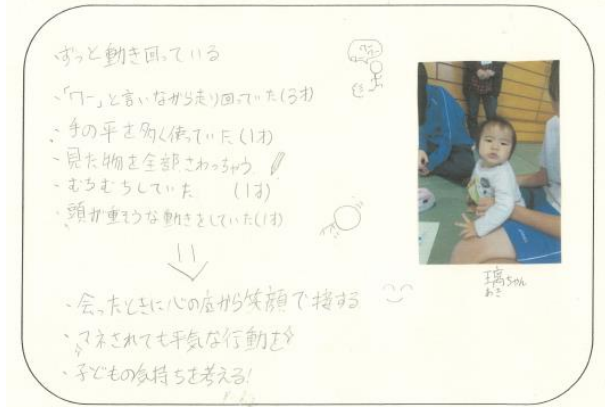 ・ずっと動き回っている
・「ワー」と言いながら走り回っていた(3才)
・手の平を多く使っていた(1才)
・見た物を全部さわっちゃう
・むちむちしていた (1才)
・頭が重そうな動きをしていた(1才)
・会ったときに心の底から笑顔で接する
・マネされても平気な行動を
・子どもの気持ちを考える!
ちゃん
あき